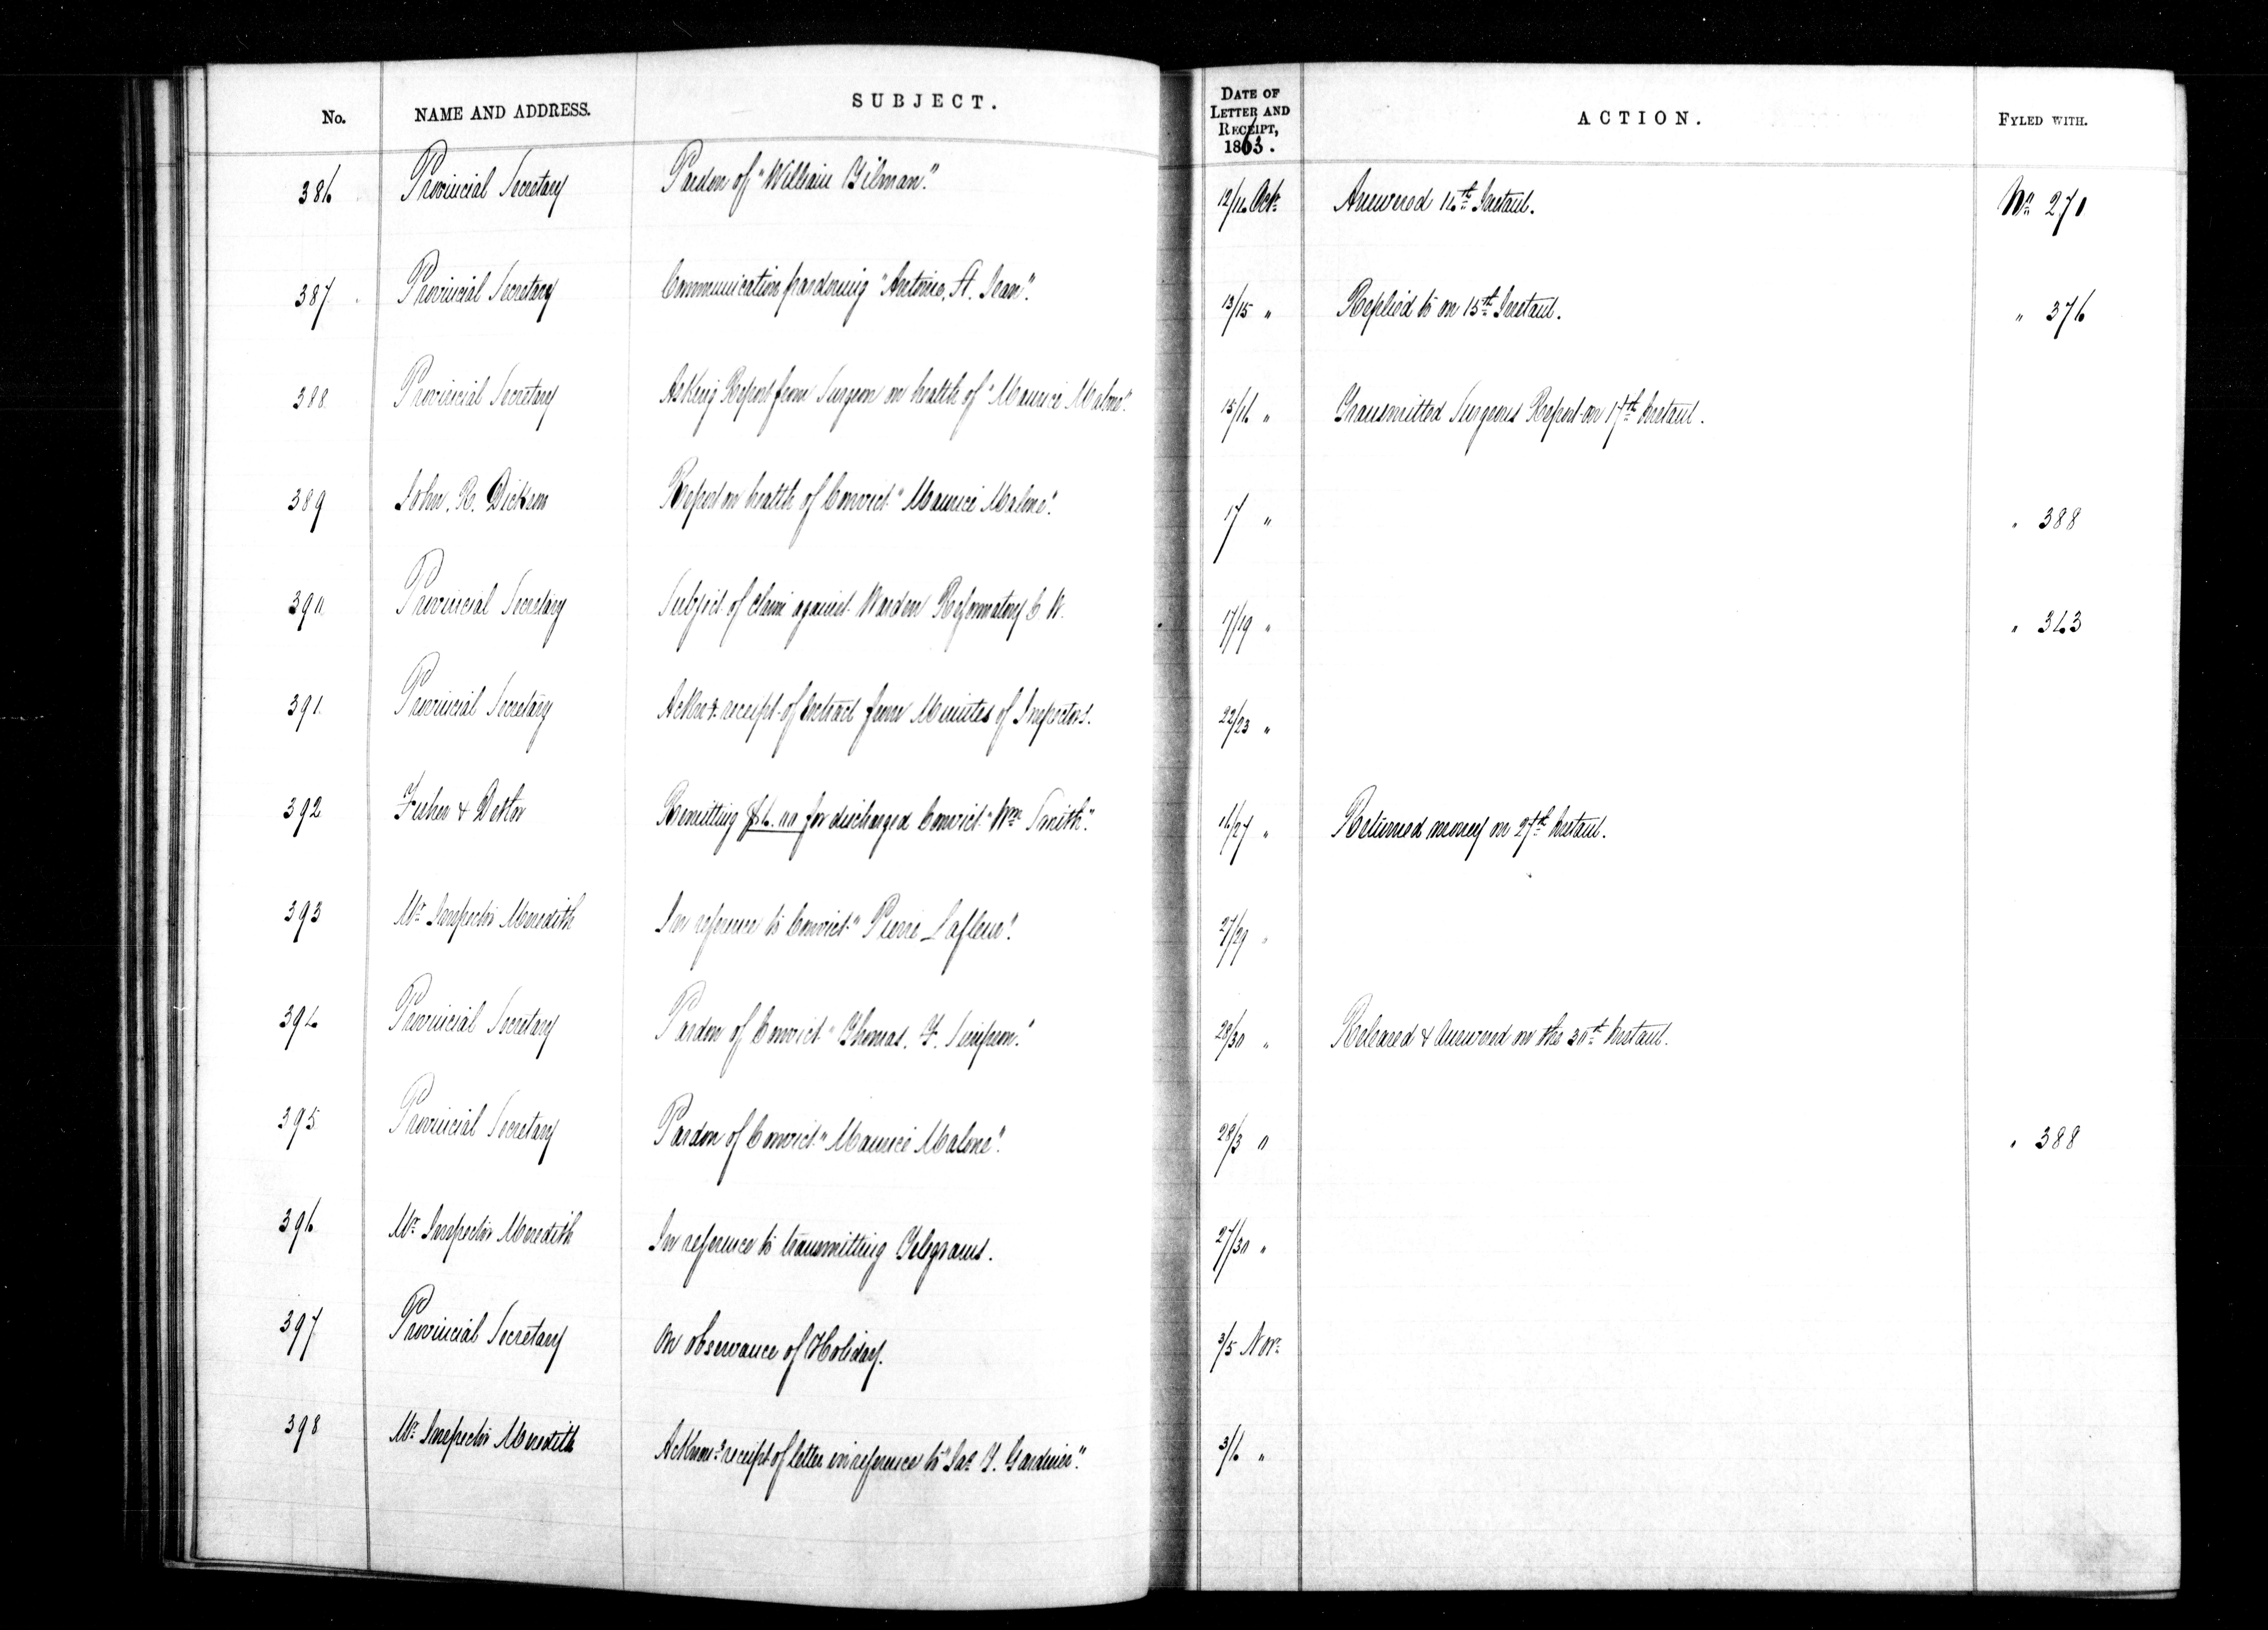 No. NAME AND ADDRESS. SUBJECT. DATE OF LETTER AND RECEIPT, 1863. ACTION. FYLED WITH.
386 Provincial Secretary Pardon of "William Gilman". 12/14 Octr. Answered 14th Instant. No. 270
387 Provincial Secretary Communication pardoning "Antoine St. Jean". 13/15 " Replied to on 15th Instant. " 376
388 Provincial Secretary Asking Report from Surgeon on health of "Maurice Malone". 15/16 " Transmitted Surgeons Report on 17th Instant.
389 John. R. Dickson Report on health of Convict "Maurice Malone". 17 " " 388
390 Provincial Secretary Subject of claim against Warden Reformatory C W. 17/19 " " 343
391 Provincial Secretary Acknog. receipt of Extract from Minutes of Inspectors. 22/23 "
392 Fisher & Doktor Remitting $4.00 for discharged Convict "Wm. Smith". 16/27 " Returned money on 27th Instant.
393 Mr. Inspector Meredith In reference to Convict "Pierre Lafleur". 27/29 "
394 Provincial Secretary Pardon of Convict "Thomas. F. Simpson." 28/30 " Released & Answered on the 30th Instant.
395 Provincial Secretary Pardon of Convict "Maurice Malone". 28/30 " 388
396 Mr. Inspector Meredith In reference to transmitting Telegrams. 27/30 "
397 Provincial Secretary On observance of Holiday. 3/5 Nov.
398 Mr. Inspector Meredith Acknowg. receipt of letter in reference to "Jas. Y. Gardiner". 3/6 "